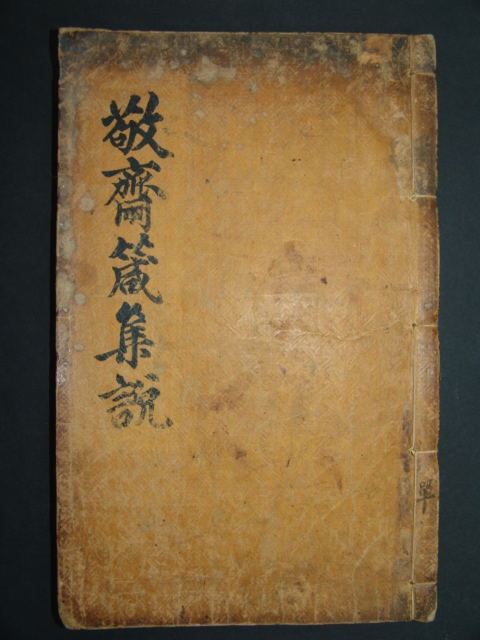 敬齋箴集說
單